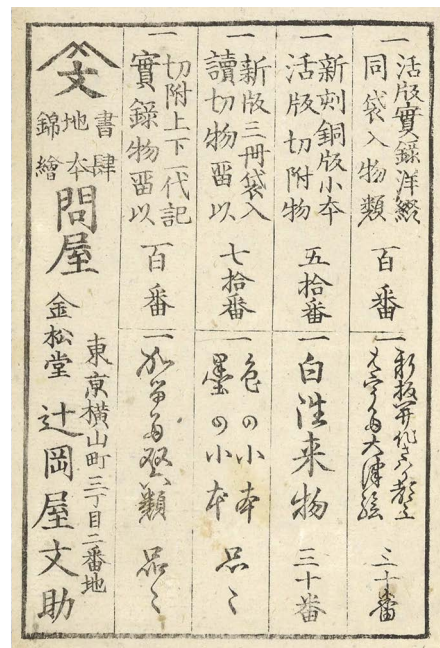 一 活版實録洋綴
同袋入物類 百番
一 新板開化
大津絵 三十番
一 新刻銅版小本
活版切附物 五拾番
一 白往来物 三十番
一 新版三冊袋入
讀切物畄以 七拾番
一 色の小本
墨の小本 品々
一 切附上下一代記
實録物畄以 百番
一 類 品々
文
書肆
地本
錦繪
問屋
東京横山町三丁目二番地
金松堂 辻岡屋文助